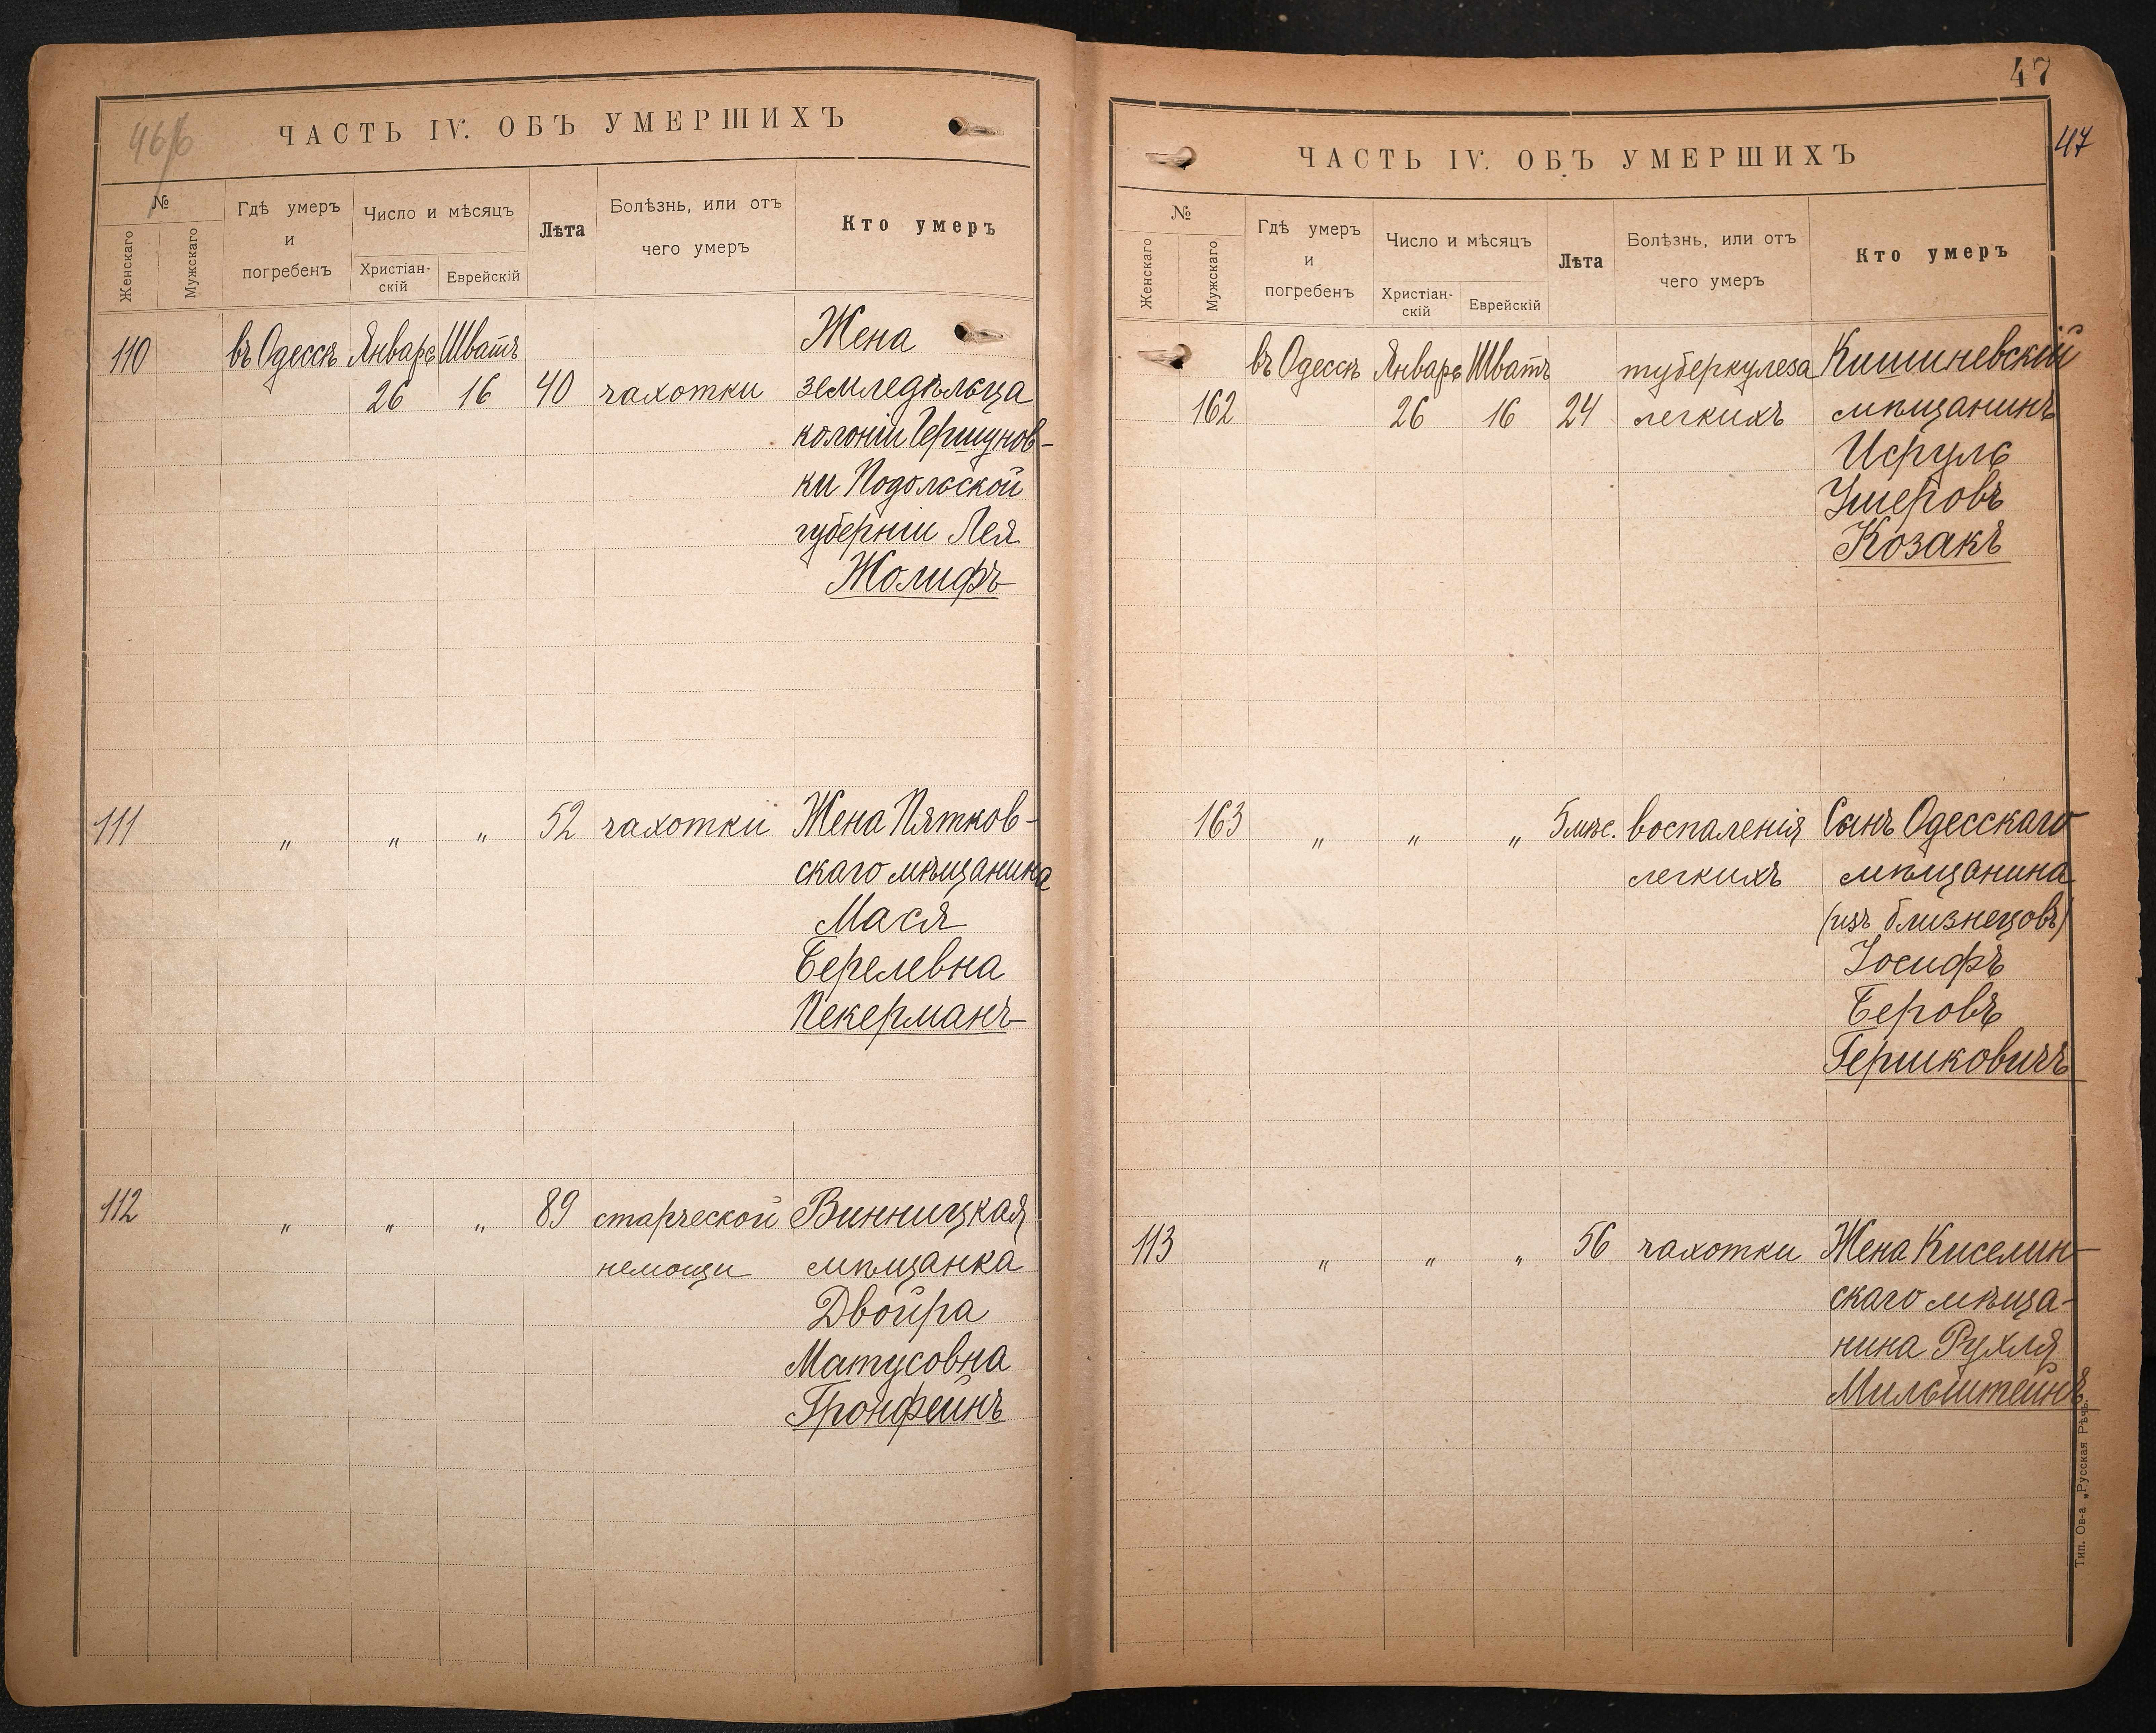 46/б
ЧАСТЬ IV. ОБЪ УМЕРШИХЪ
№
Женскаго
Мужскаго
Гдѣ умеръ
и
погребенъ
Число и мѣсяцъ
Христіан-
скій
Еврейскій
Лѣта
Болѣзнь, или отъ
чего умеръ
Кто умеръ
110 въ Одессѣ Январь Шватъ Жена
26 16 40 чахотки земледѣльца
колоніи Гершунов-
ки Подольской
губерніи Лея
Жолифъ
111 " " " 52 чахотки Жена Пятков-
скаго мѣщанина
Мася
Берелевна
Пекерманъ
112 " " " 89 старческой Винницкая
немощи мѣщанка
Двойра
Матусовна
Гронфейнъ
47
47
ЧАСТЬ IV. ОБЪ УМЕРШИХЪ
№
Женскаго
Мужскаго
Гдѣ умеръ
и
погребенъ
Число и мѣсяцъ
Христіан-
скій
Еврейскій
Лѣта
Болѣзнь, или отъ
чего умеръ
Кто умеръ
въ Одессѣ Январь Шватъ туберкулеза Кишиневскій
162 26 16 24 легкихъ мѣщанинъ
Исруль
Ушеровъ
Козакъ
163 " " " 5 мѣс. воспаленія Сынъ Одесскаго
легкихъ мѣщанина
(изъ близнецовъ)
Іосифъ
Беровъ
Гершковичъ
113 " " " 56 чахотки Жена Киселин-
скаго мѣща-
нина Рухля
Мильштейнъ
Тип. Ов-а „Русская Рѣчь.